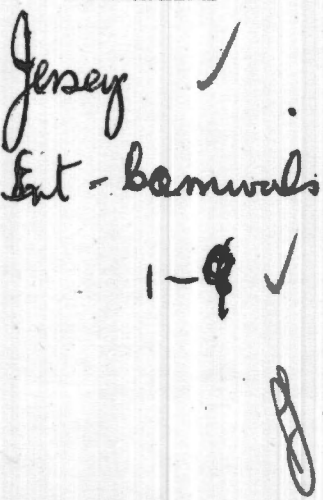 Jersey ✓
Ent - Carnivals
1-9 ✓